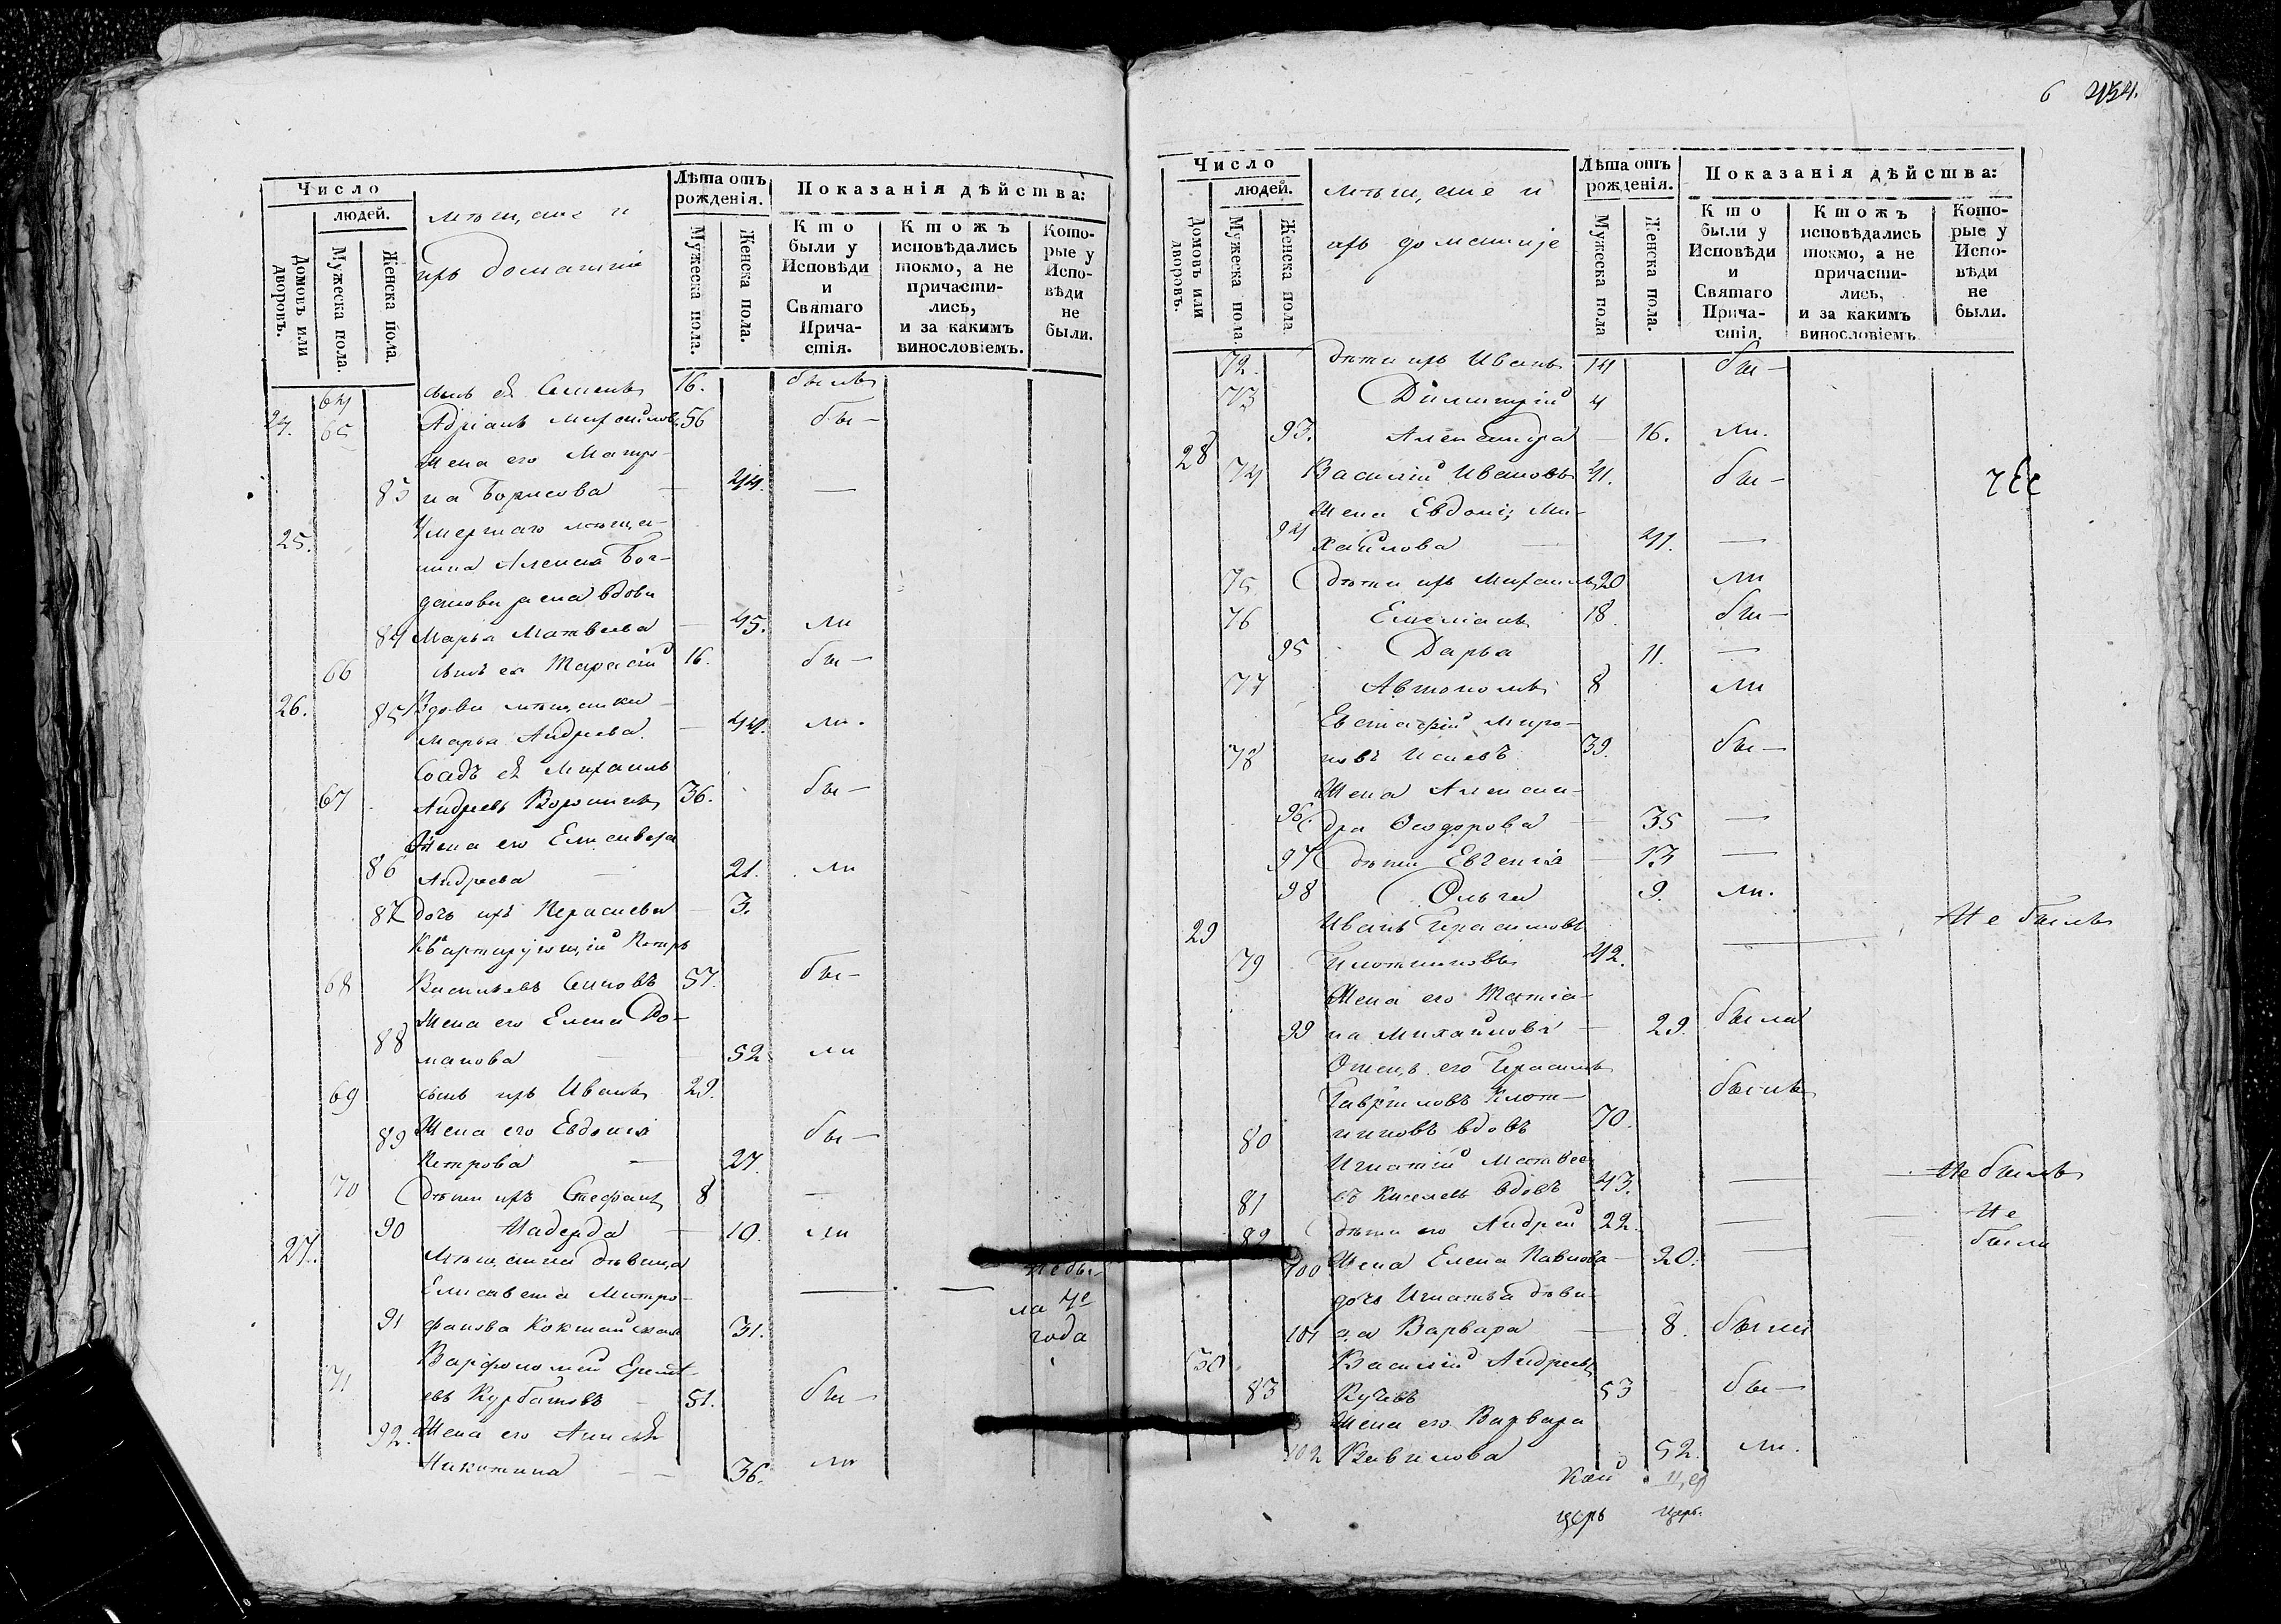 Число
людей.
Домовъ или дворовъ.
Мужеска пола.
Женска пола.
мѣщане и
ихъ домашніе
Лѣта отъ рожденія.
Мужеска пола.
Женска пола.
Показанія дѣйства:
Кто были у Исповѣди и Святаго Причастія.
Ктожъ исповѣдались токмо, а не причастились, и за какимъ винословіемъ.
Которые у Исповѣди не были.
64 сынъ ея Семенъ 16. былъ
24. 65 Адріанъ Михайловъ 56 бы-
Жена его Матро-
83 на Борисова — 44. —
25. Умершаго мѣща-
нина Алексѣя Бог-
данова жена вдова
84 Марья Матвѣева — 45. ли
66 сынъ ея Тарасій 16. бы-
26. 85 Вдова мѣщанка
Марья Андреева. — 44. ли.
Сосѣдъ ея Михаилъ
67 Андреевъ 36. бы-
Жена его Елисавета
86 Андреева — 21. ли
87 дочь ихъ — 3.
Квартирующій Петръ
68 Васильевъ 57. бы-
Жена его Елена Ро-
88 манова — 52 ли
69 сынъ ихъ Иванъ 29.
89 Жена его Евдокія бы-
Петрова — 27.
70 дѣти ихъ Стефанъ 8 —
90 Надежда — 10. ли
27. Мѣщанка дѣвица
Елисавета Митро- — — не бы-
91 фанова 31. ла 4е
года
Варфоломей
71 евъ Курбатовъ — 51. бы-
92. Жена его
Никитина — — 36. ли
6 454.
Число
людей.
Домовъ или дворовъ.
Мужеска пола.
Женска пола.
мѣщане и
ихъ домашніе
Лѣта отъ рожденія.
Мужеска пола
Женска пола.
Показанія дѣйства:
Кто были у Исповѣди и Святаго Причастія.
Ктожъ исповѣдались токмо, а не причастились, и за какимъ винословіемъ
Которые у Исповѣди не были.
72. дѣти ихъ Иванъ 14 бы-
73 Димитрій 4
93. Александра — 16. ли.
28 74 Василій Ивановъ 41. бы-
Жена Евдокія Ми-
94 хайлова — 41. —
75 дѣти ихъ Михаилъ 20 ли
76 Емеліанъ 18. бы-
95 Дарья 11. —
77 Автономъ 8 ли
Евстафій Миро-
78 новъ Исаевъ 39. бы-
Жена Алексан-
96. дра Ѳеодорова — 35 —
97 дѣти Евгенія — 13 —
98 Ольга 9. ли.
29 Иванъ Герасимовъ — Не былъ
79 Плотниковъ 42.
Жена его Татіа-
99 на Михайлова — 29. была
Отецъ его Герасимъ
Гавриловъ Плот- былъ
80 никовъ вдовъ 70.
Игнатій Матвѣе-
81 въ Киселевъ вдовъ 43. — Не былъ
82 дѣти его Андрей 22. — Не
100 Жена Елена Павлова — 20. — были
дочь Игнатья дѣви-
101 ца Варвара — 8. была
30 Василій Андреевъ
83 53 бы-
Жена его Варвара
102 Вавилова 52. ли.